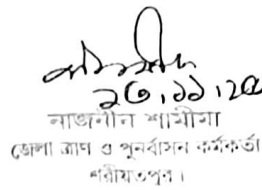 ২৩.১১.২০
নাজনীন শামীমা
জেলা ত্রাণ ও পুনর্বাসন কর্মকর্তা
শরীয়তপুর।